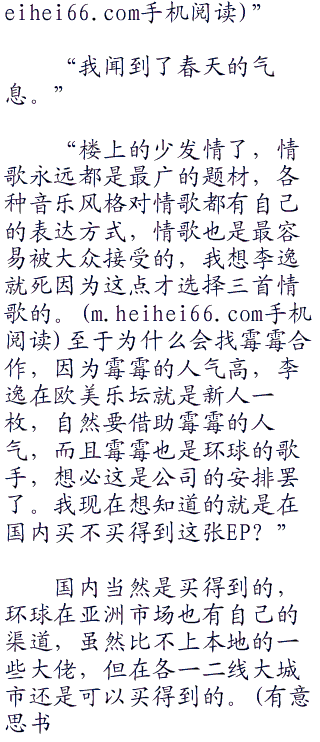 eihei66.com手机阅读)”
“我闻到了春天的气
息。”
“楼上的少发情了，情
歌永远都是最广的题材，各
种音乐风格对情歌都有自己
的表达方式，情歌也是最容
易被大众接受的，我想李逸
就死因为这点才选择三首情
歌的。(m.heihei66.com手机
阅读)至于为什么会找霉霉合
作，因为霉霉的人气高，李
逸在欧美乐坛就是新人一
枚，自然要借助霉霉的人
气，而且霉霉也是环球的歌
手，想必这是公司的安排罢
了。我现在想知道的就是在
国内买不买得到这张EP？”
国内当然是买得到的，
环球在亚洲市场也有自己的
渠道，虽然比不上本地的一
些大佬，但在各一二线大城
市还是可以买得到的。(有意
思书